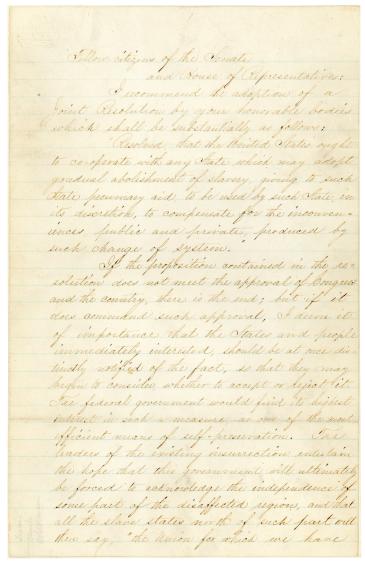 Fellow citizens of the Senate
and House of Representatives:
I recommend the adoption of a
Joint Resolution by your honorable bodies
which shall be substantially as follows:
"Resolved, that the United States ought
to co-operate with any State which may adopt
gradual abolishment of slavery, giving to such
State pecuniary aid, to be used by such State, in
its discretion, to compensate for the inconven-
iences, public and private, produced by
such change of system."
If the proposition contained in the re-
solution does not meet the approval of Congress
and the country, there is the end; but if it
does command such approval, I deem it
of importance that the States and people
immediately interested, should be at once dis-
tinctly notified of the fact, so that they may
begin to consider whether to accept or reject it.
The federal government would find its highest
interest in such a measure, as one of the most
efficient means of self-preservation. The
leaders of the existing insurrection entertain
the hope that this government will ultimately
be forced to acknowledge the independence of
some part of the disaffected region, and that
all the slave states north of such part will
then say, "the Union for which we have